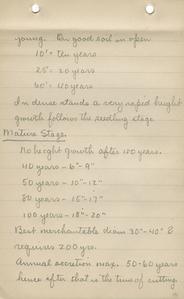 young. On good soil in open
10' = ten years
25' = 20 years
60' = 40 years
In dense stands a very rapid height
growth follows the seedling stage
Mature Stage.
No height growth after 100 years.
40 years - 6"-9"
50 years - 10"-12"
80 years - 15"-17"
100 years - 18"-20"
Best merchantable diam 30"-40" &
requires 200 yrs.
Annual accretion max. 50-60 years
hence after that is the time of cutting.